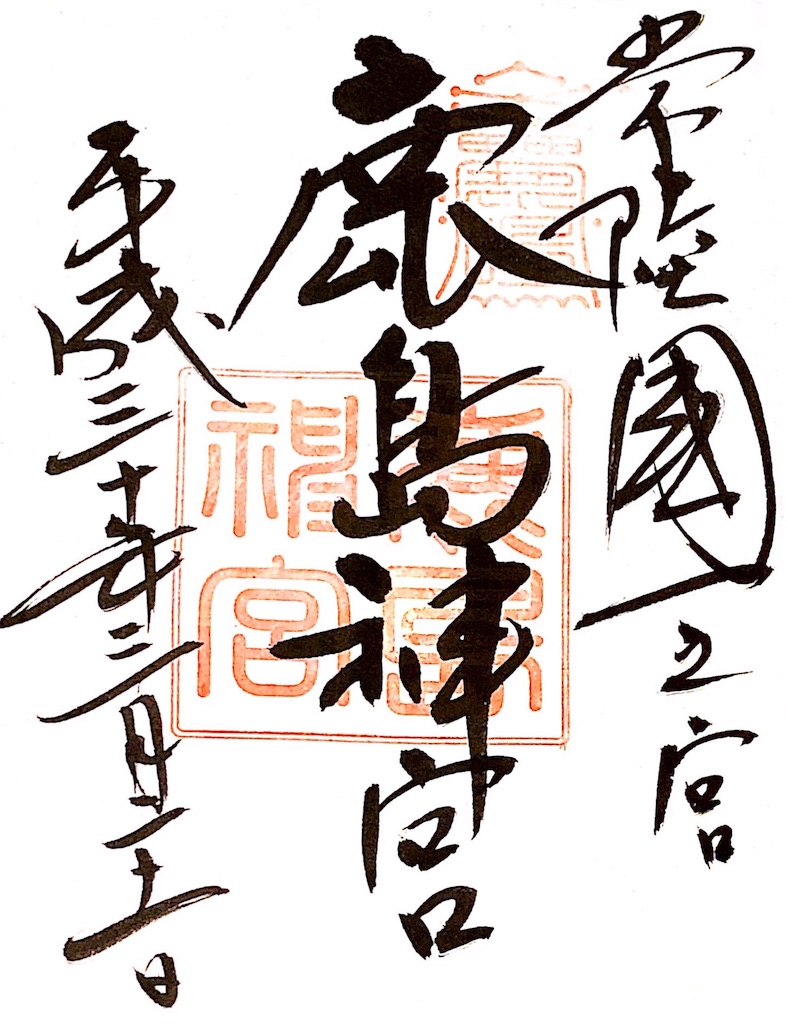 常陸國一之宮
鹿島神宮
平成三十年三月二十一日
神宮